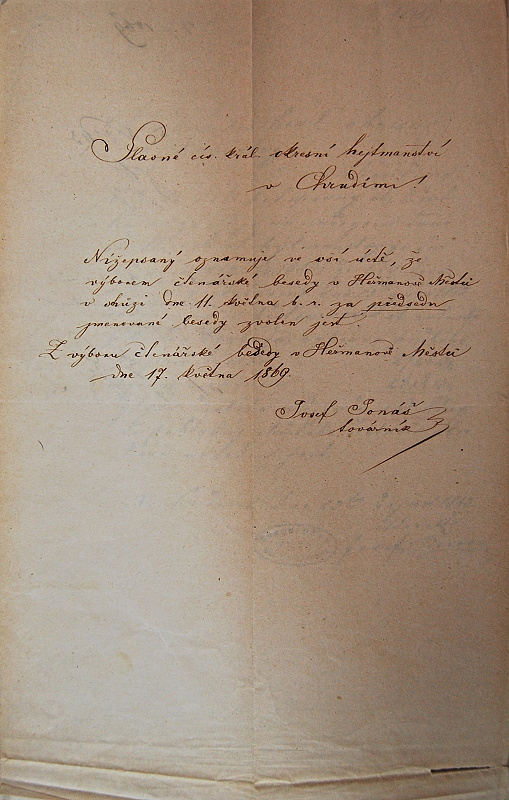 Slavné cís. král. okresní hejtmanství
v Chrudimi!
Nížepsaný oznamuje ve vší úctě, že
výborem čtenářské besedy v Heřmanově Městci
v schůzi dne 11. května b. r. za předsedu
jmenované besedy zvolen jest.
Z výboru čtenářské besedy v Heřmanově Městci
dne 17. května 1869.
Josef Jonáš
továrník